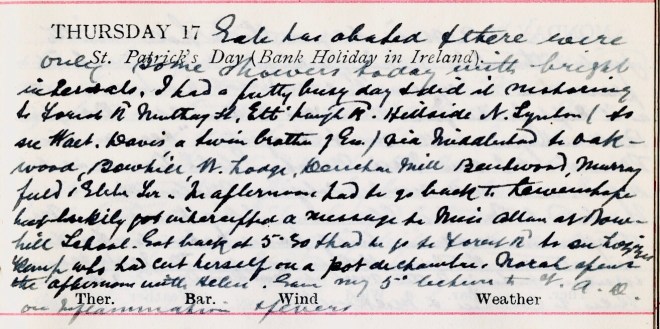 THURSDAY 17 Gale has abated & there were
only some showers today with bright
St. Patrick's Day (Bank Holiday in Ireland).
intervals. I had a pretty busy day & did it motoring
to Forest Rd Murray St, Ettrickhaugh Rd. Hillside N. Synton (to
see Davis a twin brother of ) via Middlestead to Oak-
wood, Bowhill, W. Lodge, Mill Beechwood, Murray
field & Elder Ter. In afternoon had to go back to Fowershope
but luckily got intercepted a message to Miss Allan at Bow-
hill School. Got back at 5-30 & had to go to Forest Rd to see Lizzie
Kemp who had cut herself on a pot de chambre. spent
the afternoon with Helen. Gave my 5th lecture to V. A. D.
on Inflammation & fevers
Ther. Bar. Wind Weather